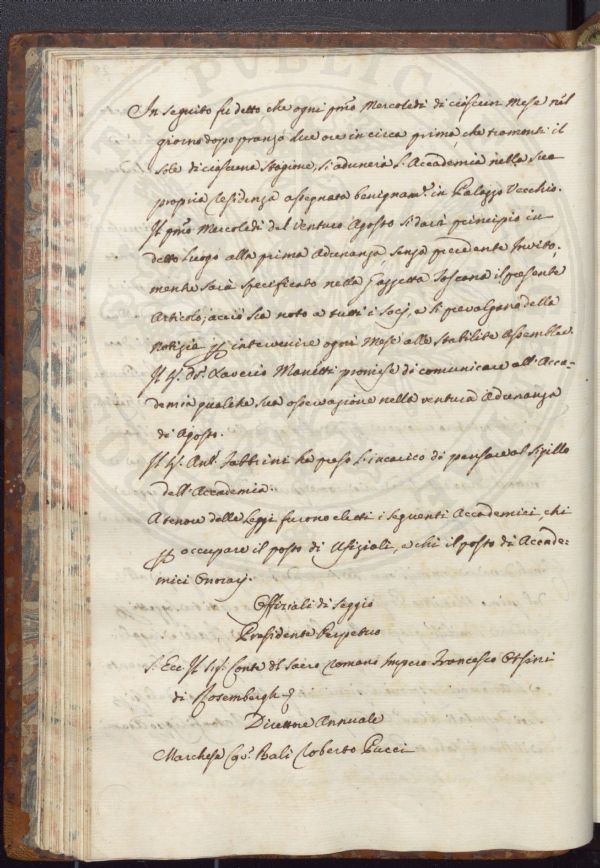 In seguito fu detto, che ogni pmo Mercoledì di ciascun Mese nel
giorno dopo pranzo due ore in circa prima, che tramonti il
Sole di ciascuna Stagione, si adunerà l'Accademia nella sua
propria Residenza assegnata benignamte in Palazzo Vecchio.
Il pmo Mercoledì del venturo Agosto si darà principio in
detto Luogo alla prima Adunanza senza precedente Invito,
mentre sarà specificato nella Gazzetta Toscana il presente
Articolo, acciò sia noto a tutti i Socj, e si prevalgano della
Notizia per intervenire ogni Mese alle stabilite Assemblee.
Il Sr. Dr. Saverio Manetti promise di comunicare all'Acca-
demia qualche sua osservazione nella ventura Adunanza
di Agosto.
Il Sr. Ant. Fabbrini ha preso l'incarico di pensare al Sigillo
dell'Accademia.
A tenore delle Leggi furono eletti i seguenti Accademici, chi
per occupare il posto di Ufiziali, e chi il posto di Accade-
mici Onorarj.
Offiziali di Seggio
Presidente Perpetuo
S. Ecc. Il Sigr. Conte del Sacro Romano Impero Francesco Orsini
di Rosembergh
Direttore Annuale
Marchese Cavr. Balì Roberto Pucci